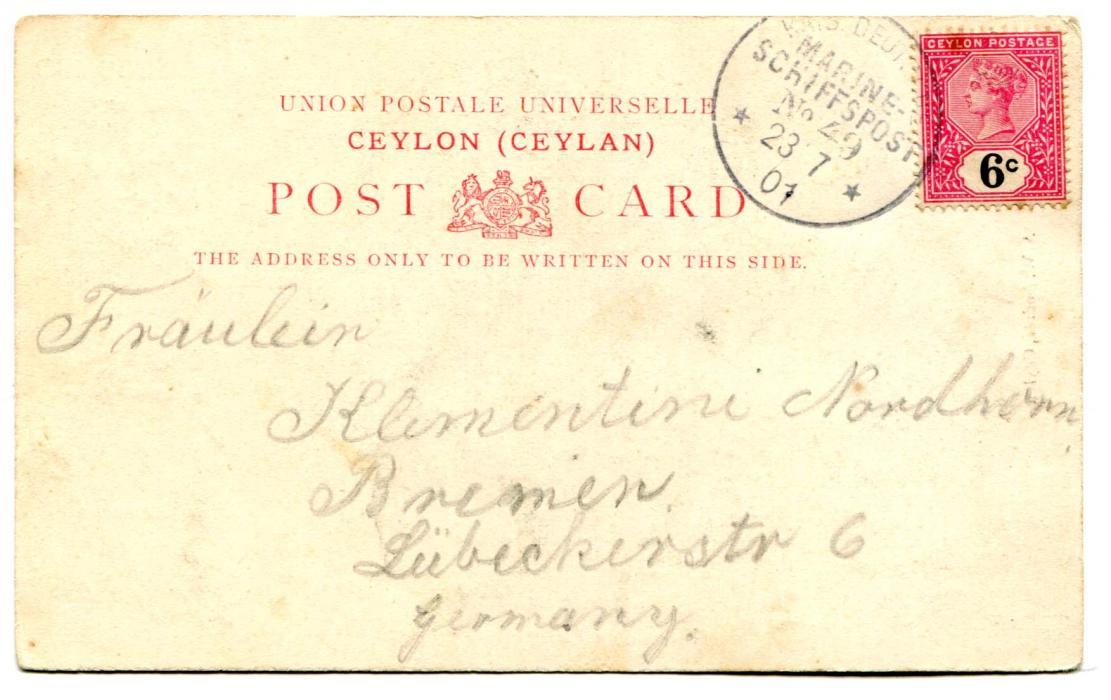 UNION POSTALE UNIVERSELLE
CEYLON (CEYLAN)
POST CARD
THE ADDRESS ONLY TO BE WRITTEN ON THIS SIDE.
MARINE-
SCHIFFSPOST
No 49
23 7
01
CEYLON POSTAGE
6c
Fräulein
Klementine Nordhorn
Bremen
Lübeckerstr 6
Germany.